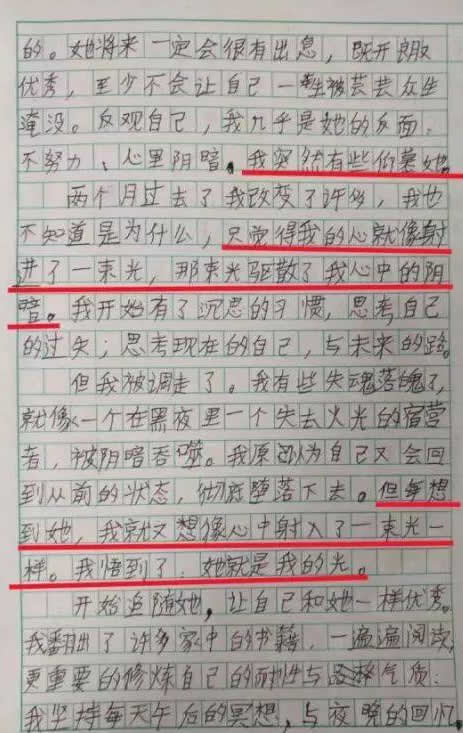 的。她将来一定会很有出息，既开朗又
优秀，至少不会让自己一生被芸芸众生
淹没。反观自己，我几乎是她的反面，
不努力、心里阴暗。我突然有些仰慕她。
两个月过去了我改变了许多，我也
不知道是为什么，只觉得我的心就像射
进了一束光，那束光驱散了我心中的阴
暗。我开始有了沉思的习惯，思考自己
的过失；思考现在的自己，与未来的路。
但我被调走了。我有些失魂落魄了，
就像一个在黑夜里一个失去火光的宿营
者，被阴暗吞噬。我原以为自己又会回
到从前的状态，彻底堕落下去。但每想
到她，我就又想像心中射入了一束光一
样。我悟到了：她就是我的光。
开始追随她，让自己和她一样优秀。
我翻出了许多家中的书籍，一遍遍阅读，
更重要的修炼自己的耐性与气质：
我坚持每天午后的冥想，与夜晚的回忆，